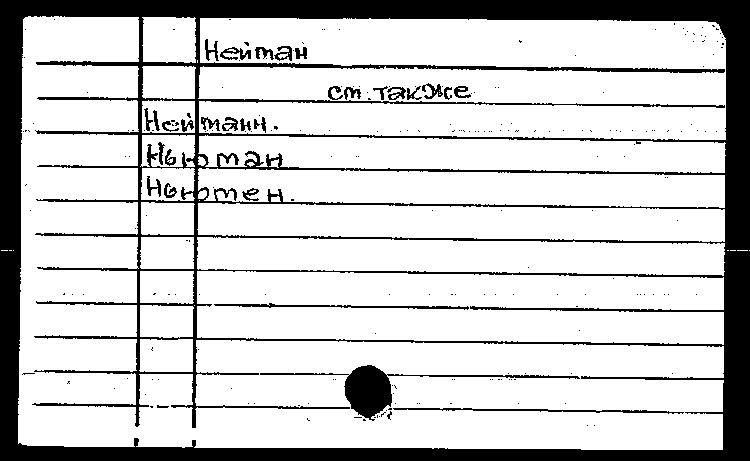 Нейман
см. также
Нейманн.
Ньюман
Ньюмен.